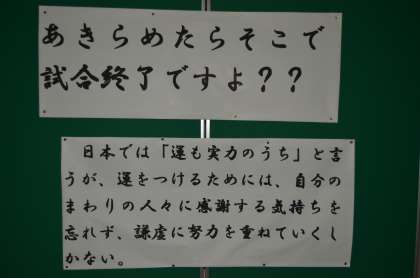 あきらめたらそこで
試合終了ですよ？？
日本では「運も実力のうち」と言
うが、運をつけるためには、自分の
まわりの人々に感謝する気持ちを
忘れず、謙虚に努力を重ねていくし
かない。